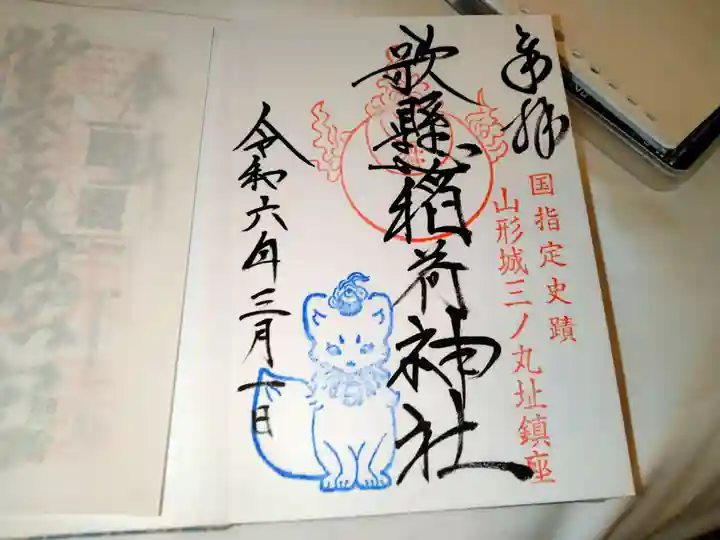 奉拝
国指定史蹟
山形城三ノ丸址鎮座
歌懸稲荷神社
令和六年三月一日